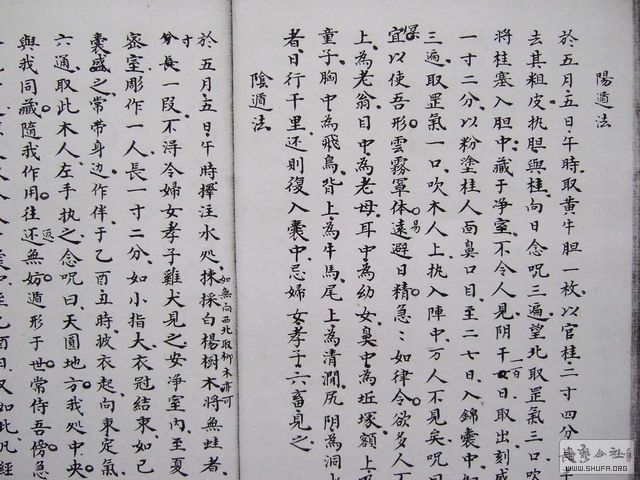 陽遁法
於五月五日午時取黃牛胆一枚以官桂二寸四分
去其粗皮执胆與桂向日念呪三遍望北取罡氣三口吹
將桂塞入胆中藏于净室不令人見阴干一百日取出刻成
一寸二分以粉塗桂人面鼻口目至二七日入錦囊中如
三遍取罡氣一口吹木人上执入陣中万人不見矣呪曰
宜以使吾形雲霧罩体遠避日精急〻如律令欲多人
上為老翁目中為老母耳中為幼女鼻中為坵塚額上
童子胸中為飛鳥背上為牛馬尾上為清澗尻阴為洞
者日行千里还則復入囊中忌婦女孝子六畜見之
陰遁法
於五月五日午時擇注水处採白楊樹木將無蛀者
如無向西北取柳木亦可
寸分長一段不淂令婦女孝子雞犬見之安净室內至夏
密室彫作一人長一寸二分如小指大衣冠結束如己
囊盛之常带身边作伴于乙酉丑時披衣起向東定氣
六通取此木人左手执之念呪曰天圓地方我処中央
與我同藏隨我作用往返还無妨遁形于世常侍吾傍急
WWW.SHUFA.ORG